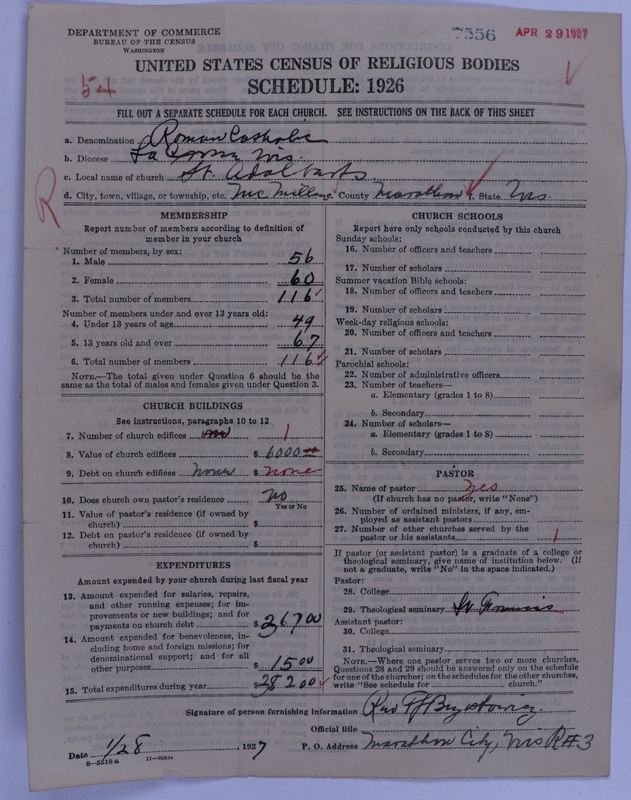 DEPARTMENT OF COMMERCE
BUREAU OF THE CENSUS
WASHINGTON
7556
APR 29 1927
54
UNITED STATES CENSUS OF RELIGIOUS BODIES
SCHEDULE: 1926
FILL OUT A SEPARATE SCHEDULE FOR EACH CHURCH. SEE INSTRUCTIONS ON THE BACK OF THIS SHEET
a. Denomination Roman Catholic
b. Diocese La Crosse, Wis.
c. Local name of church St. Adalberts
d. City, town, village, or township, etc. McMillan e. County Marathon f. State Wis.
R
MEMBERSHIP
Report number of members according to definition of
member in your church
Number of members, by sex:
1. Male 56
2. Female 60
3. Total number of members 116
Number of members under and over 13 years old:
4. Under 13 years of age 49
5. 13 years old and over 67
6. Total number of members 116
NOTE.—The total given under Question 6 should be the
same as the total of males and females given under Question 3.
CHURCH BUILDINGS
See instructions, paragraphs 10 to 12
7. Number of church edifices 1
8. Value of church edifices $ 6000
9. Debt on church edifices none $ none
10. Does church own pastor's residence no
Yes or No
11. Value of pastor's residence (if owned by
church) $
12. Debt on pastor's residence (if owned by
church) $
EXPENDITURES
Amount expended by your church during last fiscal year
13. Amount expended for salaries, repairs,
and other running expenses; for im-
provements or new buildings; and for
payments on church debt $ 367 00
14. Amount expended for benevolences, in-
cluding home and foreign missions; for
denominational support; and for all
other purposes $ 15 00
15. Total expenditures during year $ 382 00
CHURCH SCHOOLS
Report here only schools conducted by this church
Sunday schools:
16. Number of officers and teachers
17. Number of scholars
Summer vacation Bible schools:
18. Number of officers and teachers
19. Number of scholars
Week-day religious schools:
20. Number of officers and teachers
21. Number of scholars
Parochial schools:
22. Number of administrative officers
23. Number of teachers—
a. Elementary (grades 1 to 8)
b. Secondary
24. Number of scholars—
a. Elementary (grades 1 to 8)
b. Secondary
PASTOR
25. Name of pastor Yes
(If church has no pastor, write "None")
26. Number of ordained ministers, if any, em-
ployed as assistant pastors
27. Number of other churches served by the
pastor or his assistants 1
If pastor (or assistant pastor) is a graduate of a college or
theological seminary, give name of institution below. (If
not a graduate, write "No" in the space indicated.)
Pastor:
28. College
29. Theological seminary St Francis
Assistant pastor:
30. College
31. Theological seminary
NOTE.—Where one pastor serves two or more churches,
Questions 28 and 29 should be answered only on the schedule
for one of the churches; on the schedules for the other churches,
write "See schedule for church."
Signature of person furnishing information Rev
Official title
Date 1/28, 1927 P. O. Address Marathon City, Wis R#3
8-5518a 11-9054a